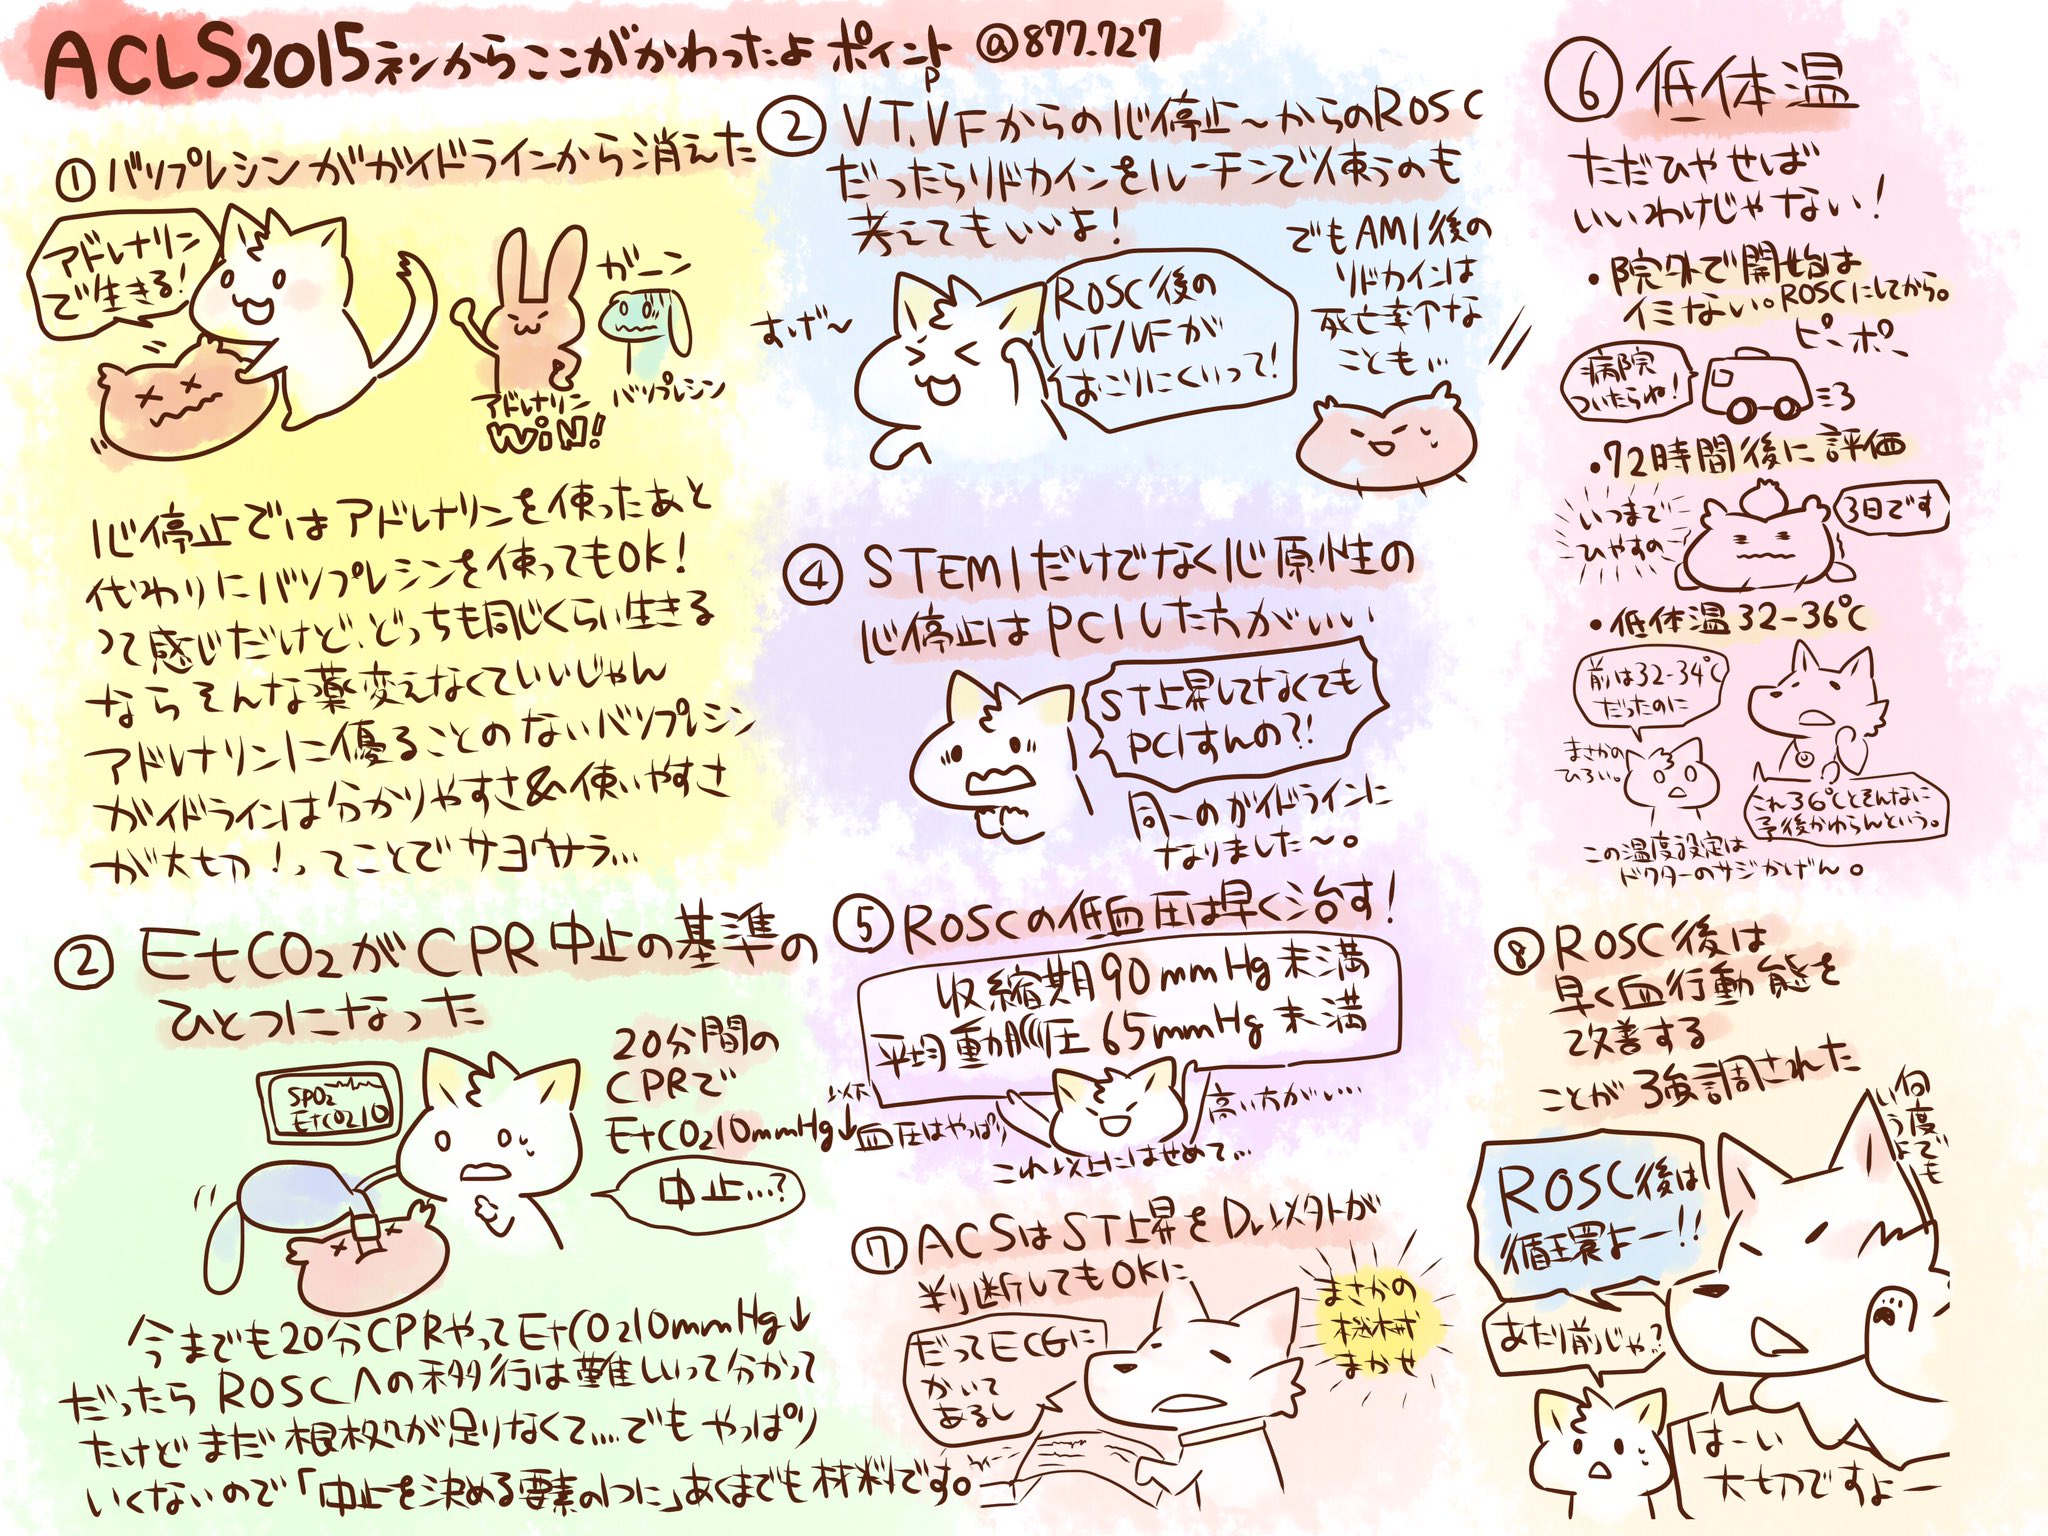 ACLS2015ネンからここがかわったよ ポイント @877_727
①バソプレシンがガイドラインから消えた
アドレナリン
で生きる!
ガーン
アドレナリン
WiN!
バソプレシン
心停止ではアドレナリンを使ったあと
代わりにバソプレシンを使ってもOK!
って感じだけど、どっちも同じくらい生きる
ならそんな薬変えなくていいじゃん
アドレナリンに優ることのないバソプレシン
ガイドラインは分かりやすさ&使いやすさ
が大切!ってことでサヨウナラ…
② EtCO2がCPR中止の基準の
ひとつになった
SPO2
EtCO210
20分間の
CPRで
EtCO210mmHg↓
以下
中止…?
今までも20分CPRやってEtCO210mmHg↓
だったらROSCへの移行は難しいって分かって
たけどまだ根拠が足りなくて….でもやっぱり
いくないので「中止を決める要素の1つに」あくまでも材料です。
② VT,VFからの心停止~からのROSC
だったらリドカインをルーチンで使うのも
考えてもいいよ!
すげ~
ROSC後の
VT/VFが
おこりにくいって!
でもAMI後の
リドカインは
死亡率↑な
ことも…
④ STEMIだけでなく心原性の
心停止はPCIした方がいい
ST上昇してなくても
PCIすんの?!
同一のガイドラインに
なりました~。
⑤ROSCの低血圧は早く治す!
収縮期90mmHg未満
平均動脈圧65mmHg未満
血圧はやっぱり
高い方がい…
これ以上にはせめて…
⑦ACSはST上昇をDr以外が
判断してもOKに
だってECGに
かいて
あるし
まさかの
機械
まかせ
⑥低体温
ただひやせば
いいわけじゃない!
・院外で開始は
イミない。ROSCにしてから。
ピーポー
病院
ついたらね!
・72時間後に評価
いつまで
ひやすの
3日です
・低体温32-36℃
前は32-34℃
だったのに
まさかの
ひろい。
これ36℃とそんなに
予後かわらんという。
この温度設定は
ドクターのサジかげん。
⑧ROSC後は
早く血行動態を
改善する
ことが強調された
何度でも
いうよ
ROSC後は
循環よー!!
あたり前じゃ?
はーい
大切ですよー